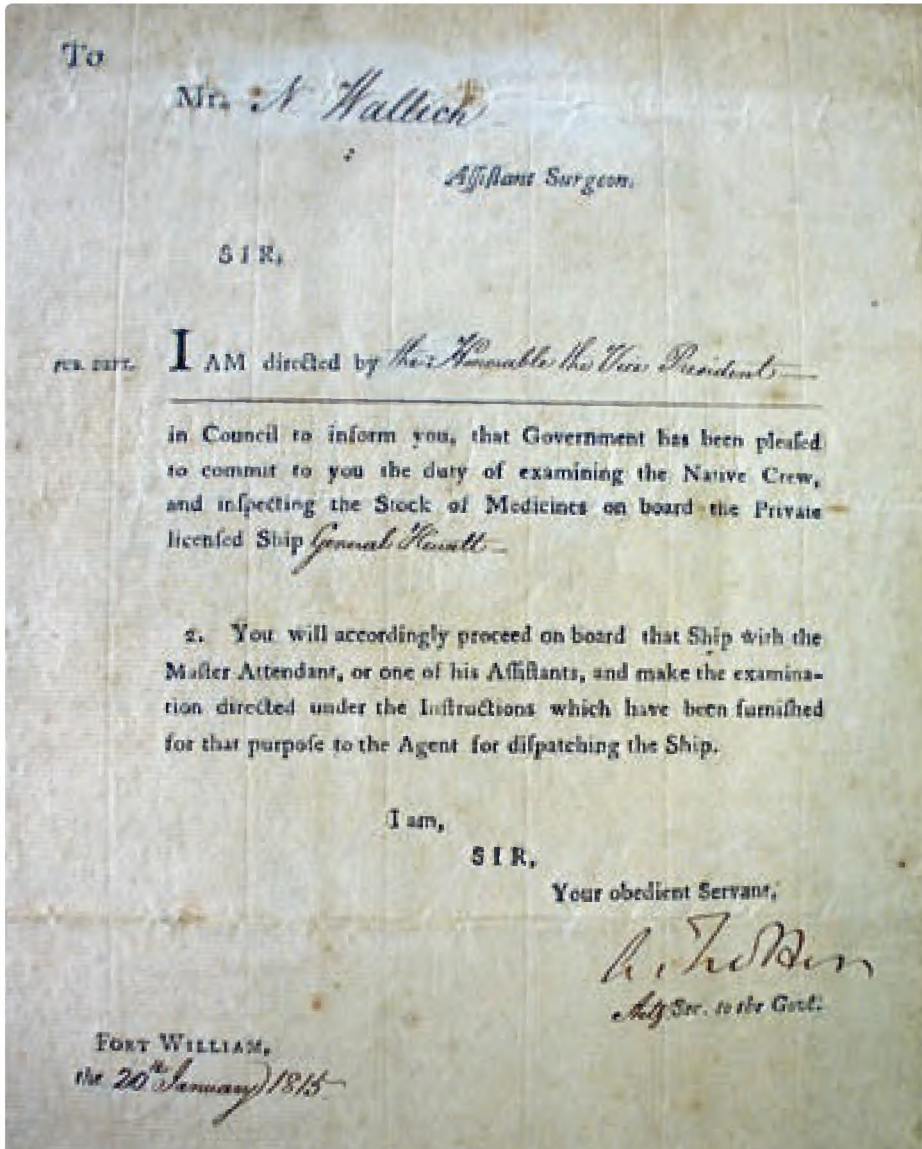 To
Mr. N Wallich
Aſſiſtant Surgeon.
SIR,
PUB. DEPT. I AM directed by the Honorable the Vice President
in Council to inform you, that Government has been pleaſed
to commit to you the duty of examining the Native Crew,
and inſpecting the Stock of Medicines on board the Private
licenſed Ship General Hewett
2. You will accordingly proceed on board that Ship with the
Maſter Attendant, or one of his Aſſiſtants, and make the examina-
tion directed under the Inſtructions which have been furniſhed
for that purpoſe to the Agent for diſpatching the Ship.
I am,
SIR,
Your obedient Servant,
Actg Sec. to the Govt.
FORT WILLIAM,
the 20th January 1815